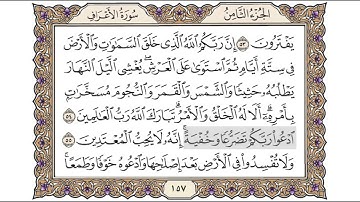 الجزء الثامن
سورة الأعراف
يَفْتَرُونَ ٥٣ إِنَّ رَبَّكُمُ اللَّهُ الَّذِي خَلَقَ السَّمَاوَاتِ وَالْأَرْضَ
فِي سِتَّةِ أَيَّامٍ ثُمَّ اسْتَوَىٰ عَلَى الْعَرْشِ يُغْشِي اللَّيْلَ النَّهَارَ
يَطْلُبُهُ حَثِيثًا وَالشَّمْسَ وَالْقَمَرَ وَالنُّجُومَ مُسَخَّرَاتٍ
بِأَمْرِهِ أَلَا لَهُ الْخَلْقُ وَالْأَمْرُ تَبَارَكَ اللَّهُ رَبُّ الْعَالَمِينَ ٥٤
ادْعُوا رَبَّكُمْ تَضَرُّعًا وَخُفْيَةً إِنَّهُ لَا يُحِبُّ الْمُعْتَدِينَ ٥٥
وَلَا تُفْسِدُوا فِي الْأَرْضِ بَعْدَ إِصْلَاحِهَا وَادْعُوهُ خَوْفًا وَطَمَعًا
١٥٧